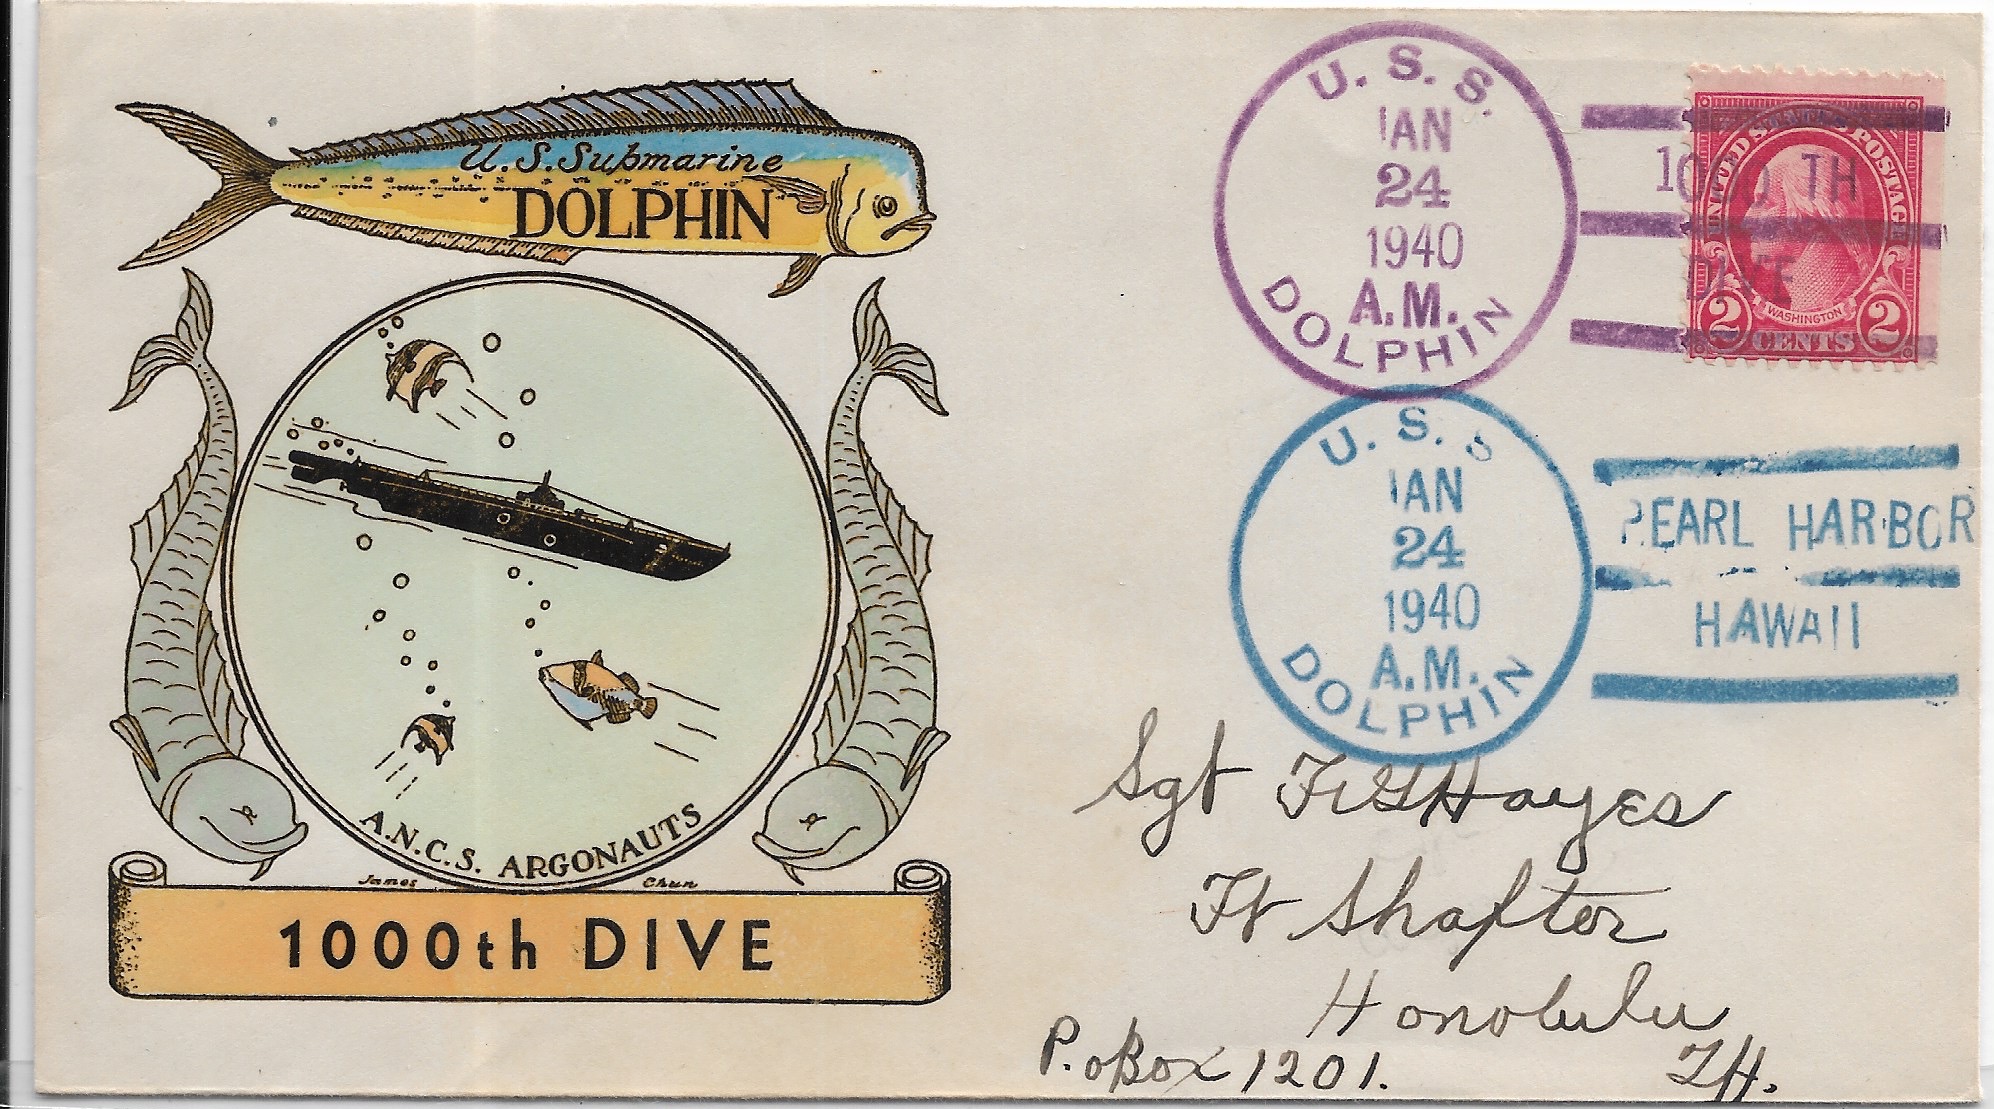 U.S. Submarine
DOLPHIN
A.N.C.S. ARGONAUTS
James Chun
1000th DIVE
U. S. S.
JAN
24
1940
A.M.
DOLPHIN
1000 TH
DIVE
UNITED STATES POSTAGE
WASHINGTON
2 2
CENTS
U. S. S
JAN
24
1940
A.M.
DOLPHIN
PEARL HARBOR
HAWAII
Sgt F G Hayes
Ft Shafter
Honolulu
P.O Box 1201. T.H.